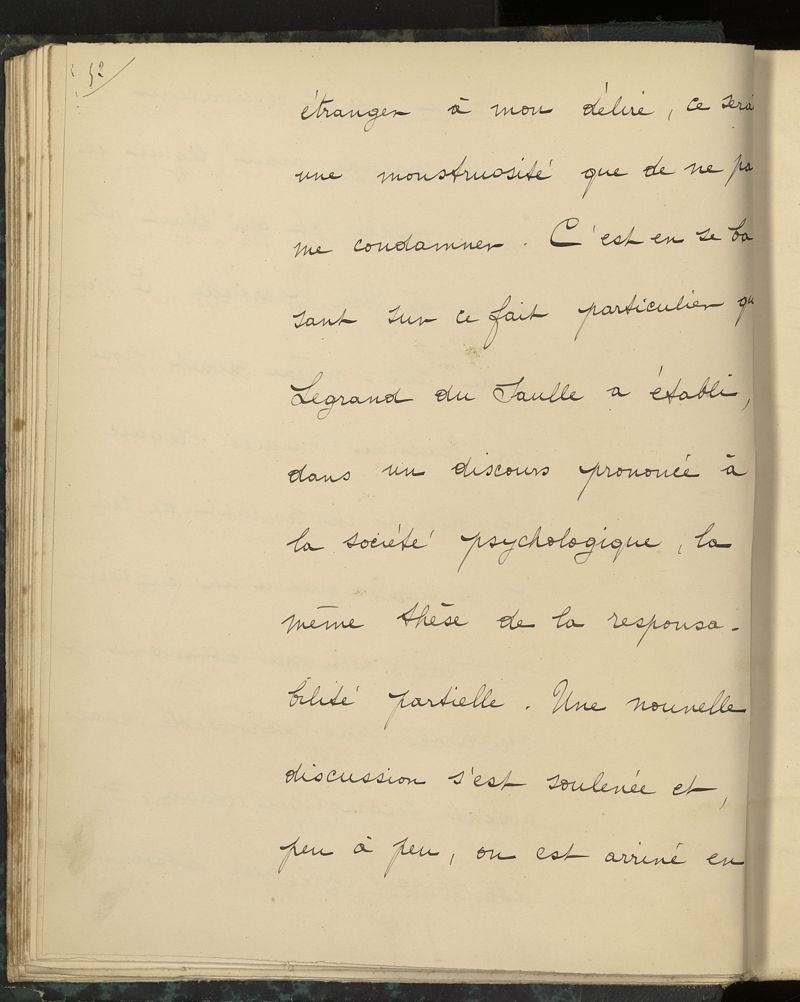 52
étranger à mon délire, ce sera
une monstruosité que de ne pa
me condamner. C'est en se ba
sant sur ce fait particulier qu
Legrand du Saulle a établi,
dans un discours prononcé à
la société psychologique, la
même thèse de la responsa-
bilité partielle. Une nouvelle
discussion s'est soulevée et,
peu à peu, on est arrivé en